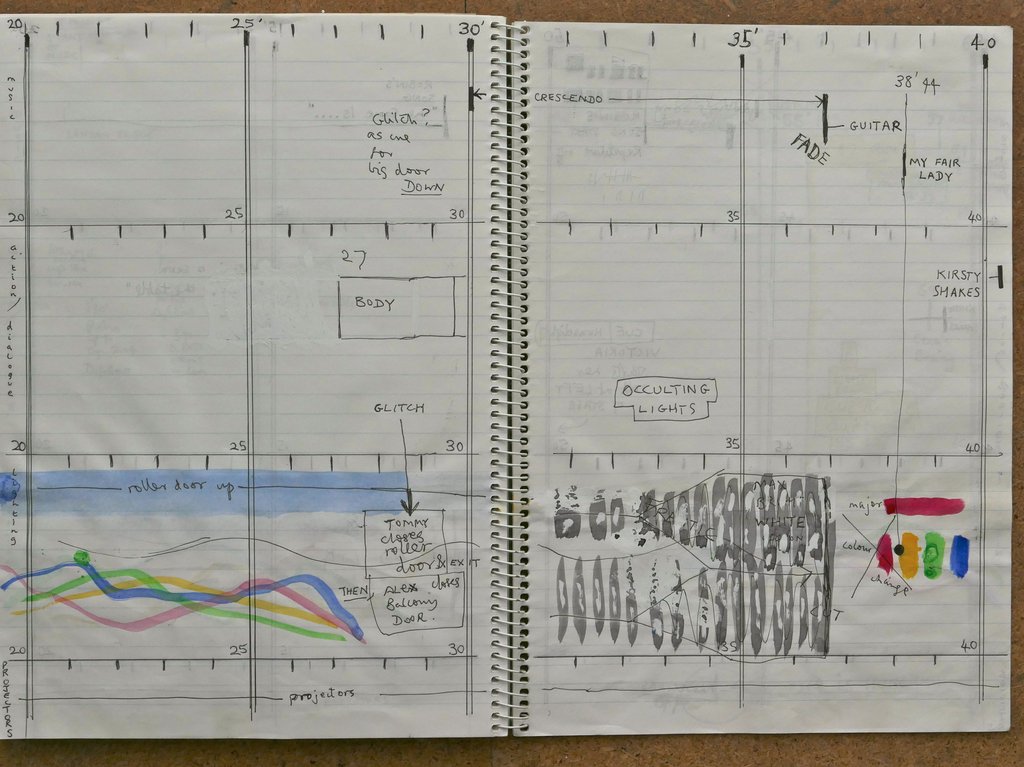 20
25'
30'
35'
40
music
Glitch?
as cue
for
big door
DOWN
CRESCENDO
FADE
GUITAR
38' 44
MY FAIR
LADY
20
25
30
35
40
action/dialogue
27
BODY
GLITCH
OCCULTING
LIGHTS
KIRSTY
SHAKES
20
25
30
35
40
Lighting
roller door up
TOMMY
closes
roller
door & EXIT
THEN
ALEX closes
Balcony
DOOR.
ERRATIC
WHITE
major
colour
change
20
25
30
35
40
PROJECTORS
projectors